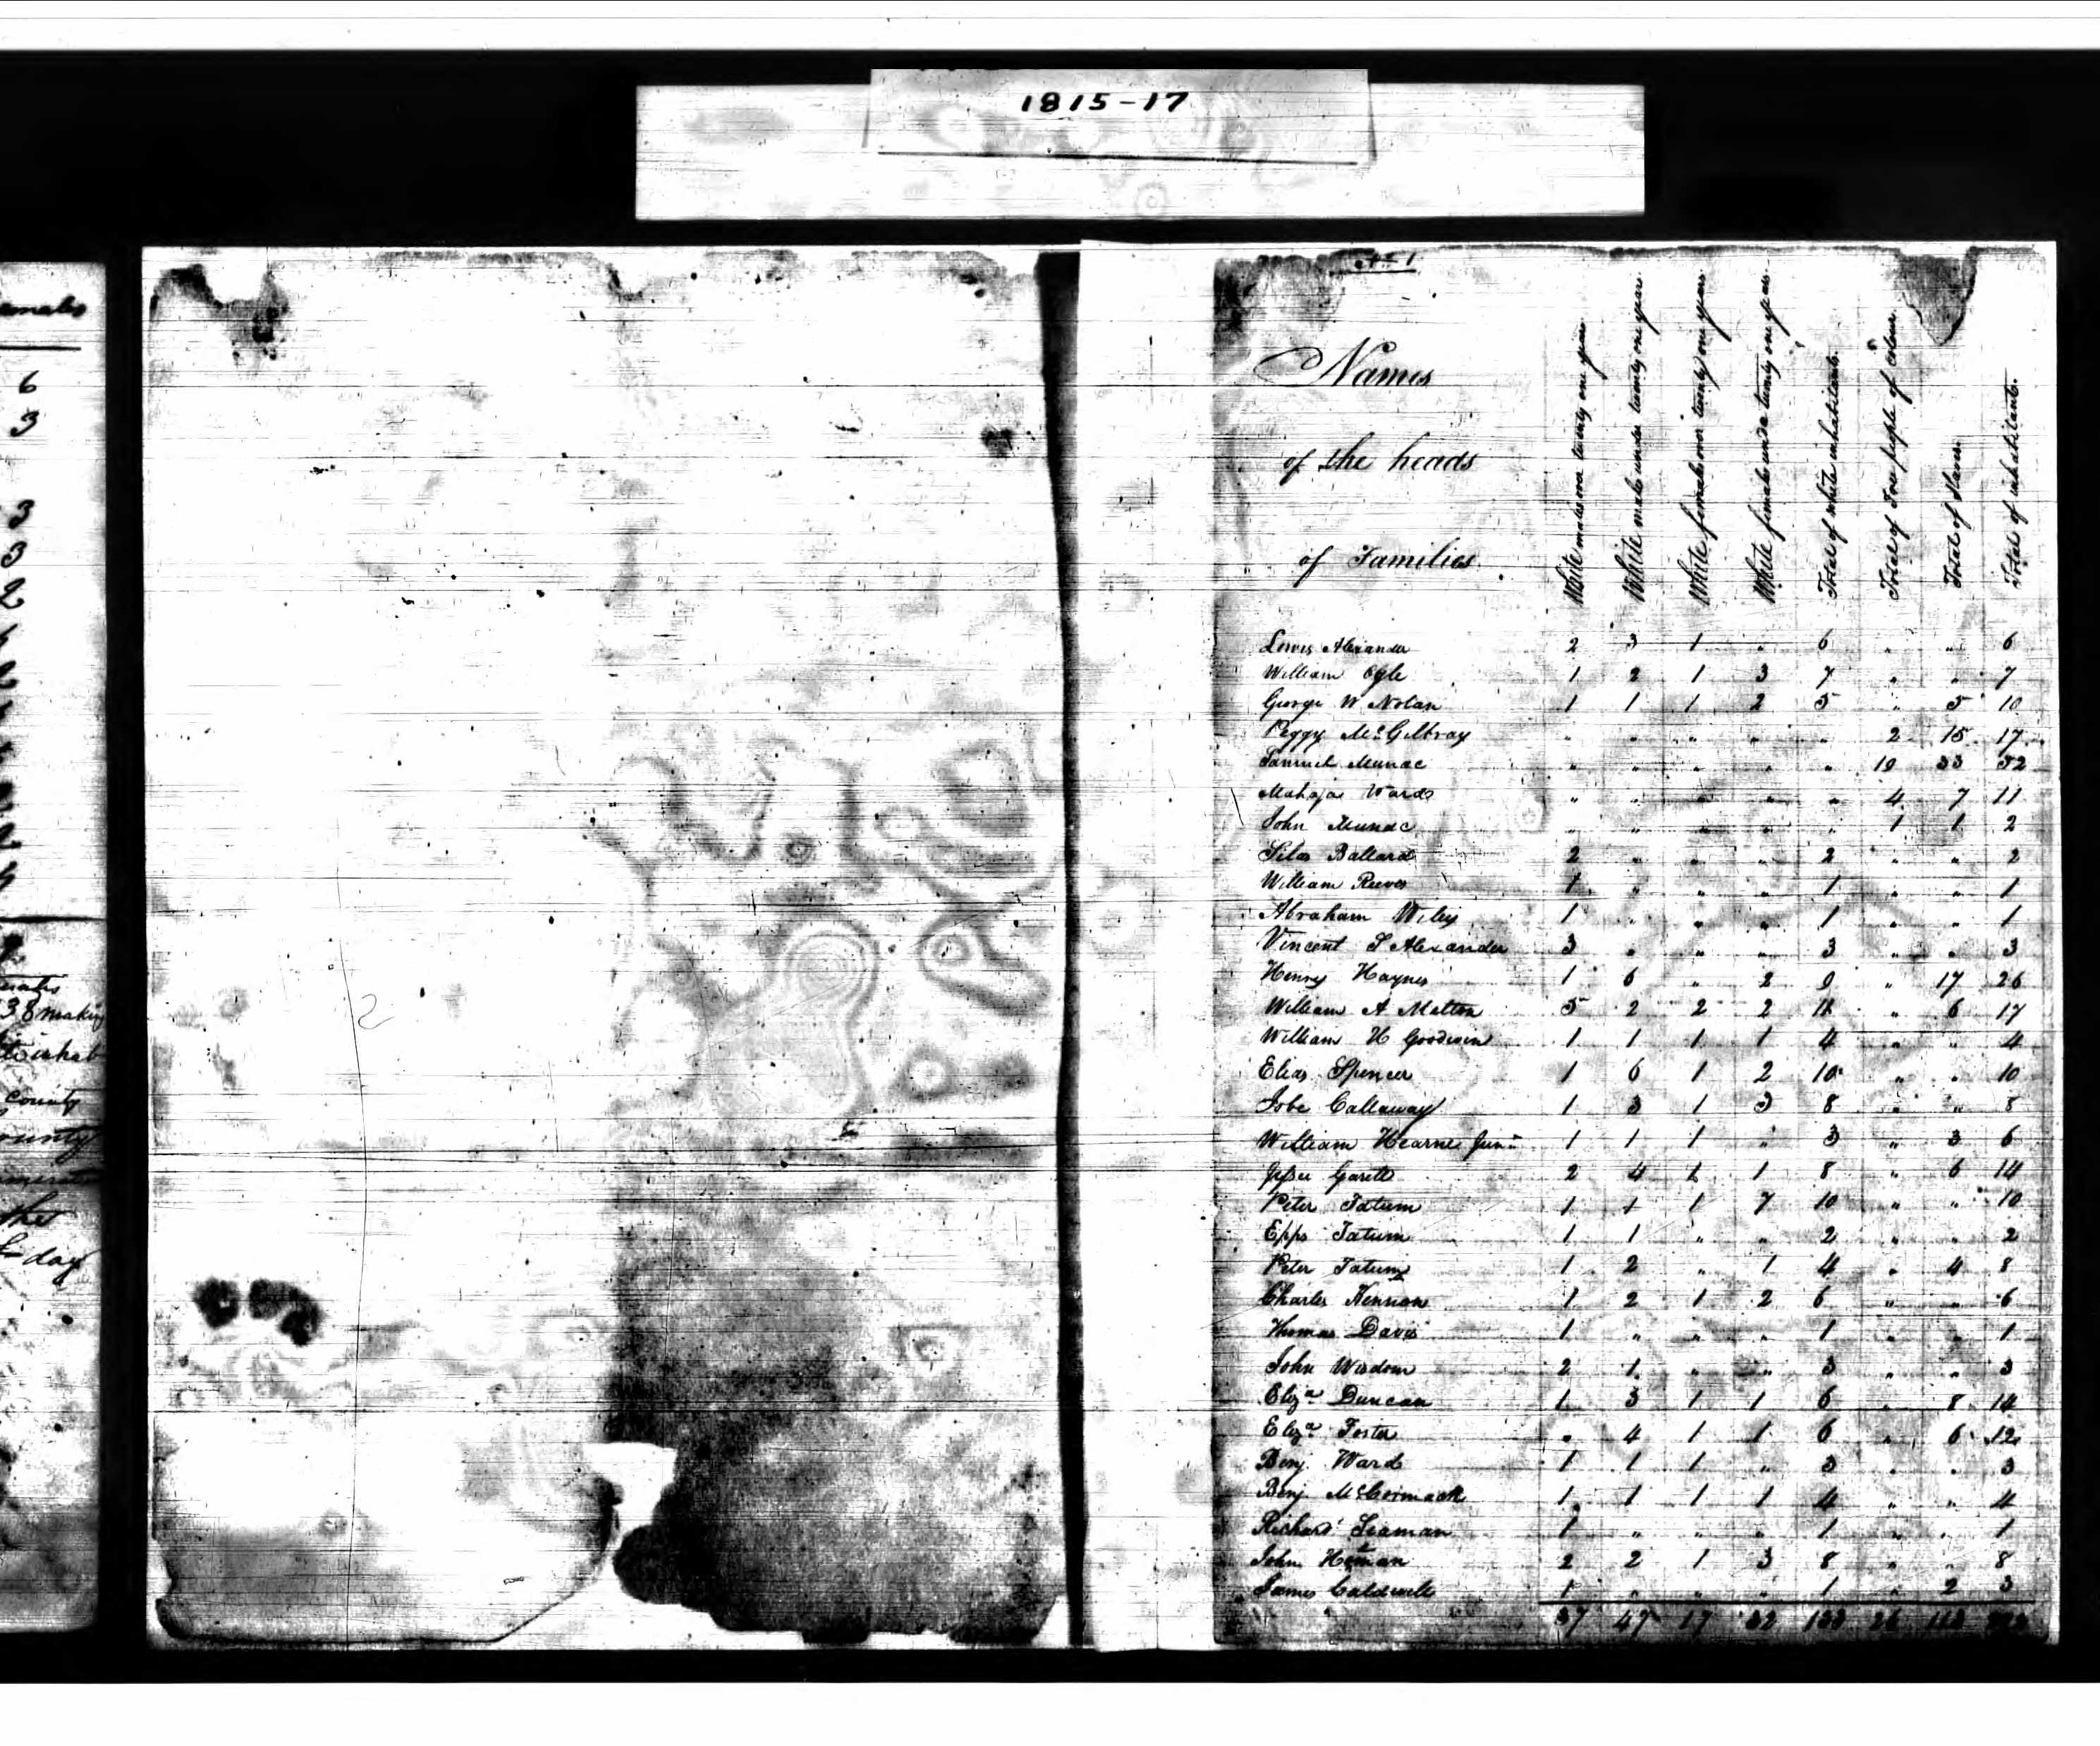 1815-17
No 1
Names
of the heads
of Families
White males over twenty one years
White males under twenty one years
White females over twenty one years
White females under twenty one years
Total of white inhabitants
Total of Free people of Colour
Total of Slaves
Total of inhabitants.
Lewis Alexander 2 3 1 " 6 " " 6
William Ogle 1 2 1 3 7 " " 7
George W Nolan 1 1 1 2 5 " 5 10
Peggy McGilbray " " " " " 2 15 17
Samuel Manac " " " " " 19 33 52
Mahaja Ward " " " " " 4 7 11
John Manac " " " " " 1 1 2
Silas Ballard 2 " " " 2 " " 2
William Reeves 1 " " " 1 " " 1
Abraham Wiley 1 " " " 1 " " 1
Vincent S Alexander 3 " " " 3 " " 3
Henry Haynes 1 6 " 2 9 " 17 26
William A Melton 5 2 2 2 11 " 6 17
William H Goodwin 1 1 1 1 4 " " 4
Elias Spencer 1 6 1 2 10 " " 10
Jobe Callaway 1 3 1 3 8 " " 8
William Hearne Junr 1 1 1 " 3 " 3 6
Jesse Garett 2 4 1 1 8 " 6 14
Peter Tatum 1 1 1 7 10 " " 10
Epps Tatum 1 1 " " 2 " " 2
Peter Tatum 1 2 " 1 4 " 4 8
Charles Kennon 1 2 1 2 6 " " 6
Thomas Davis 1 " " " 1 " " 1
John Wisdom 2 1 " " 3 " " 3
Eliza Duncan 1 3 1 1 6 " 8 14
Eliza Foster " 4 1 1 6 " 6 12
Benj. Ward 1 1 1 " 3 " " 3
Benj. McCormack 1 1 1 1 4 " " 4
Richard Seaman 1 " " " 1 " " 1
John Heman 2 2 1 3 8 " " 8
James Caldwell 1 " " " 1 " 2 3
37 47 17 32 133 26 113 272
emales
6
3
3
3
2
38 making
inhab
County
ounty
the
day